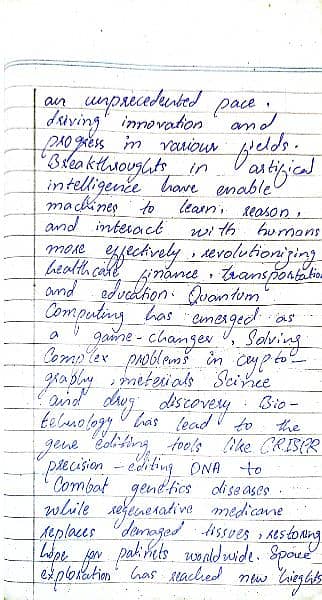 an unprecedented pace,
driving innovation and
progress in various fields.
Breakthroughts in artifical
intelligence have enable
machines to learn, reason,
and interact with humans
more effectively, revolutionizing
healthcare finance, transportation
and education. Quantum
Computing has emerged as
a game-changer, Solving
Complex problems in crypto-
graphy, materials Science
and drug discovery. Bio-
tehnology has lead to the
gene editing tools like CRISCR
precision-editing DNA to
Combat genetics diseases.
while regenerative medicane
replaces damaged tissues, restoring
hope for patinets worldwide. Space
exploration has reached new hieghts